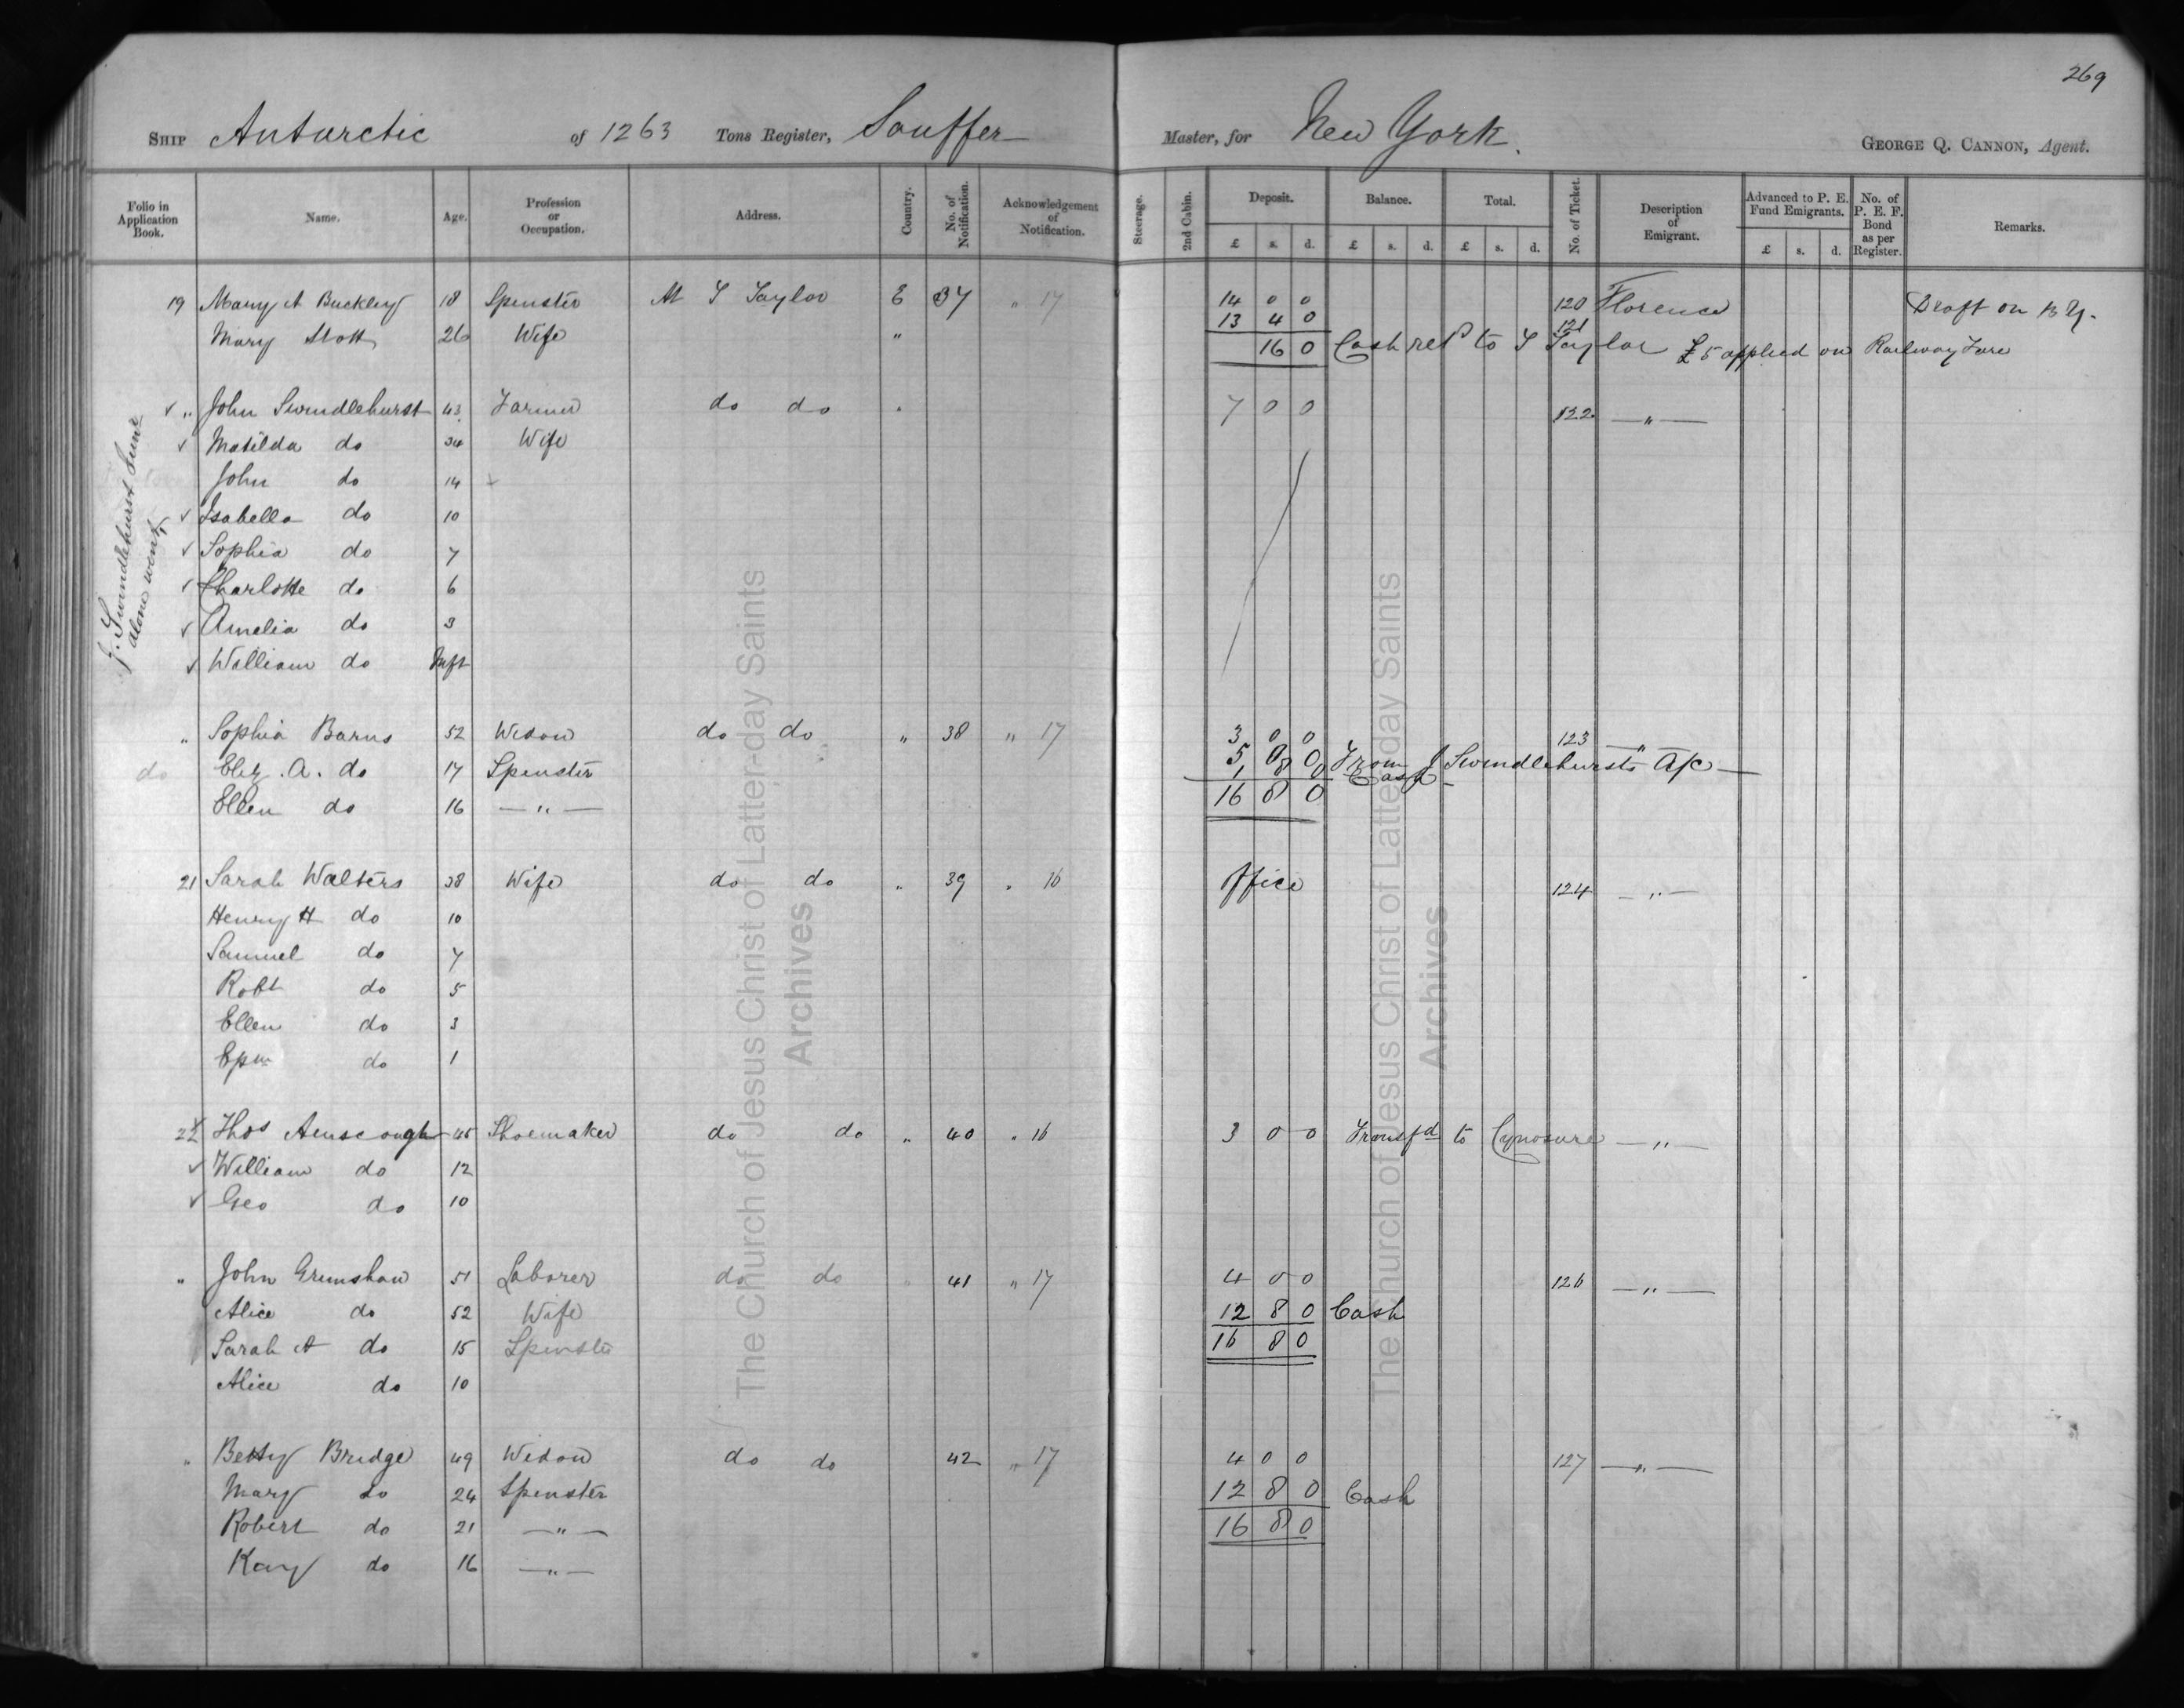 269
SHIP Antarctic of 1263 Tons Register, Souffer Master, for New York. GEORGE Q. CANNON, Agent.
Folio in Application Book. Name. Age. Profession or Occupation. Address. Country. No. of Notification. Acknowledgement of Notification. Steerage. 2nd Cabin. Deposit. £ s. d. Balance. £ s. d. Total. £ s. d. No. of Ticket. Description of Emigrant. Advanced to P. E. Fund Emigrants. £ s. d. No. of P. E. F. Bond as per Register. Remarks.
19 Mary A Buckley 18 Spinster At T Taylor E 37 " 17 14 0 0 120 Florence Draft on B Y.
Mary Stott 26 Wife " 13 4 0 121
16 0 Cash retd to T Taylor £5 applied on Railway Fare
✓ " John Swindlehurst 43 Farmer do do " 7 0 0 122 — " —
✓ Matilda do 34 Wife
John do 14 +
✓ Isabella do 10
✓ Sophia do 7
✓ Charlotte do 6
✓ Amelia do 3
✓ William do Inft
J. Swindlehurst Junr alone went
" Sophia Barns 52 Widow do do " 38 " 17 3 0 0 123 — " —
do Eliz. A. do 17 Spinster 5 0 0 From J Swindlehursts A/c
8 0 Cash
Ellen do 16 — " — 16 8 0
21 Sarah Walters 38 Wife do do " 39 " 16 Office 124 — " —
Henry H do 10
Samuel do 7
Robt do 5
Ellen do 3
do 1
22 Thos Ainscough 45 Shoemaker do do " 40 " 16 3 0 0 Transfd to Cynosure — " —
✓ William do 12
✓ Geo do 10
" John Grimshaw 51 Laborer do do " 41 " 17 4 0 0 126 — " —
Alice do 52 Wife 12 8 0 Cash
Sarah A do 15 Spinster 16 8 0
Alice do 10
" Betty Bridge 49 Widow do do 42 " 17 4 0 0 127 — " —
Mary do 24 Spinster 12 8 0 Cash
Robert do 21 — " — 16 8 0
Kay do 16 — " —
The Church of Jesus Christ of Latter-day Saints
Archives
The Church of Jesus Christ of Latter-day Saints
Archives